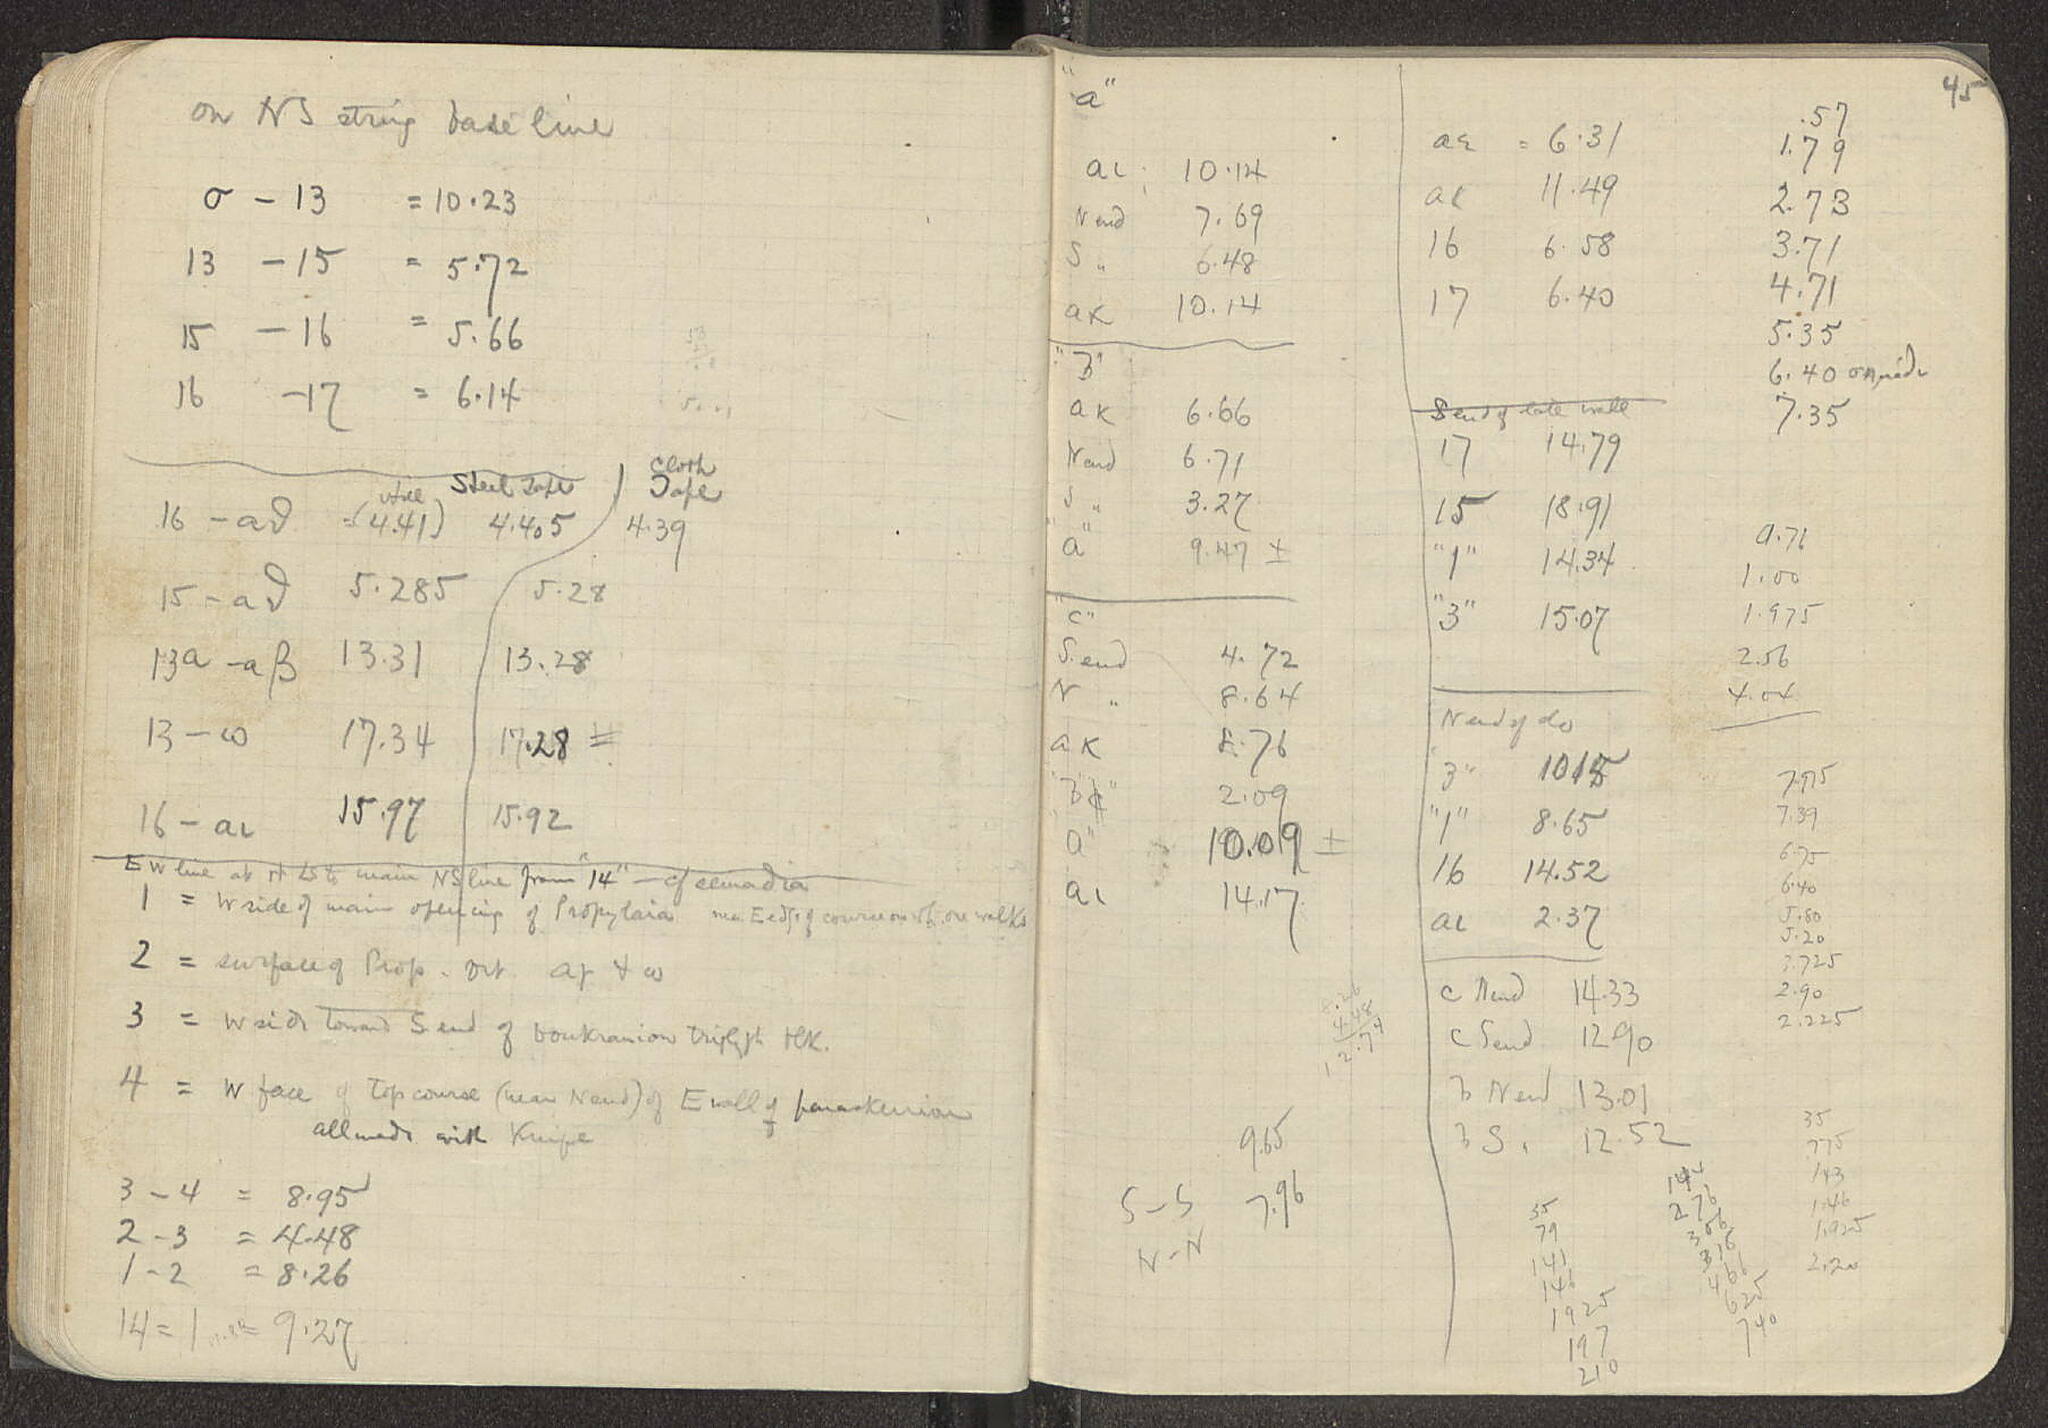 on NS string base line
σ - 13 = 10.23
13 - 15 = 5.72
15 - 16 = 5.66
16 - 17 = 6.14
Steel Tape
Cloth Tape
16 - aϑ = (4.41) 4.405 4.39
15 - aϑ 5.285 5.28
13a - aβ 13.31 13.28
13 - ω 17.34 17.28
16 - aι 15.97 15.92
EW line at rt Ls to main NS line from "14" - cf
1 = W side of main opening of Propylaia near E edge of course on wh. one walks
2 = surface of Prop.
3 = W side toward S end of boukranion triglyph
4 = W face of top course (near N end) of E wall of
all made with Knife
3 - 4 = 8.95
2 - 3 = 4.48
1 - 2 = 8.26
14 = 1 = 9.27
45
"a"
aι 10.14
N end 7.69
S " 6.48
aκ 10.14
"B"
aκ 6.66
N end 6.71
S " 3.27
"a" 9.47 ±
"C"
S. end 4.72
N " 8.64
aκ 8.76
2.09
a" 10.09 ±
aι 14.17
4.48
12.74
9.65
S - S 7.96
N - N
aε = 6.31
aκ 11.49
16 6.58
17 6.40
S end of late wall
17 14.79
15 18.91
"1" 14.34
"3" 15.07
N end of do
"3" 10.15
"1" 8.65
16 14.52
aι 2.37
C N end 14.33
C S end 12.90
B N end 13.01
B S " 12.52
35
79
141
146
1925
197
210
144
276
306
316
466
625
740
.57
1.79
2.73
3.71
4.71
5.35
6.40
7.35
0.71
1.00
1.975
2.56
4.04
7.39
6.75
6.40
5.80
5.20
3.725
2.90
2.225
35
775
143
1.46
1.925
2.20